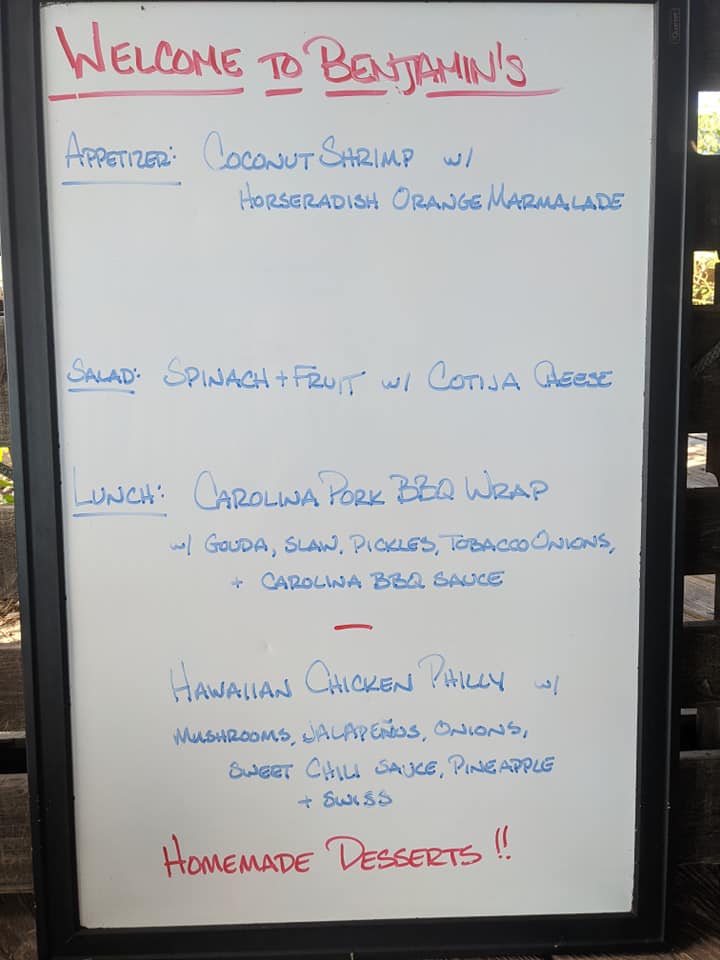 WELCOME TO BENJAMIN'S
APPETIZER: COCONUT SHRIMP W/
HORSERADISH ORANGE MARMALADE
SALAD: SPINACH + FRUIT W/ COTIJA CHEESE
LUNCH: CAROLINA PORK BBQ WRAP
W/ GOUDA, SLAW, PICKLES, TOBACCO ONIONS,
+ CAROLINA BBQ SAUCE
HAWAIIAN CHICKEN PHILLY W/
MUSHROOMS, JALAPEÑOS, ONIONS,
SWEET CHILI SAUCE, PINEAPPLE
+ SWISS
HOMEMADE DESSERTS!!